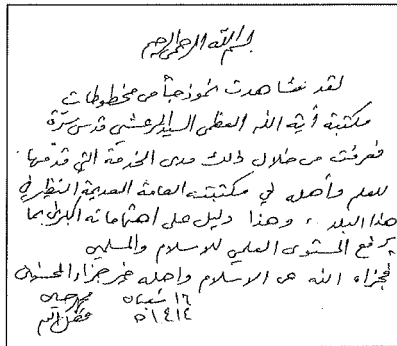 بسم الله الرحمن الرحيم
لقد شاهدت نموذجاً من مخطوطات
مكتبة آية الله العظمى السيد المرعشي قدس سرّه
فعرفت من خلال ذلك مدى الخدمة التي قدّمها
للعلم وأهله في مكتبته العامة العديمة النظير في
هذا البلد ، وهذا دليل على اهتماماته الكبرى بما
يرفع المستوى العلمي للاسلام والمسلمين
فجزاه الله عن الاسلام واهله خير جزاء المحسنين
١٦ شعبان محمد حسين
١٤١٤ ه فضل الله